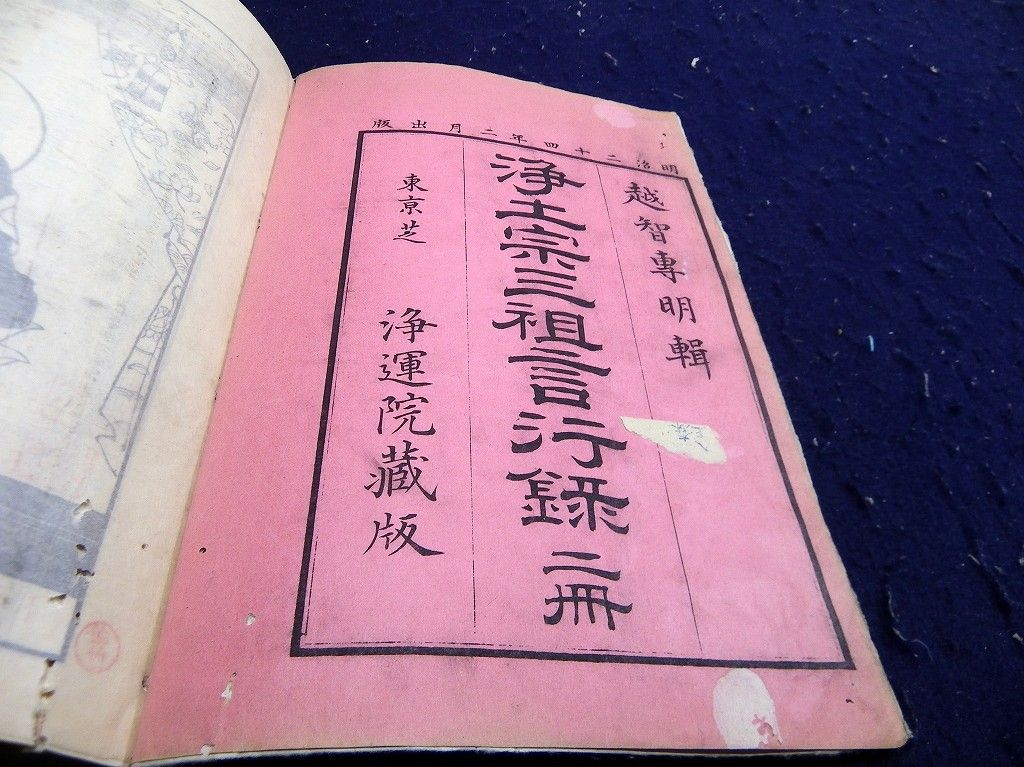 明治二十四年二月出版
越智專明輯
浄土宗三祖言行錄 二冊
東京芝 浄運院藏版